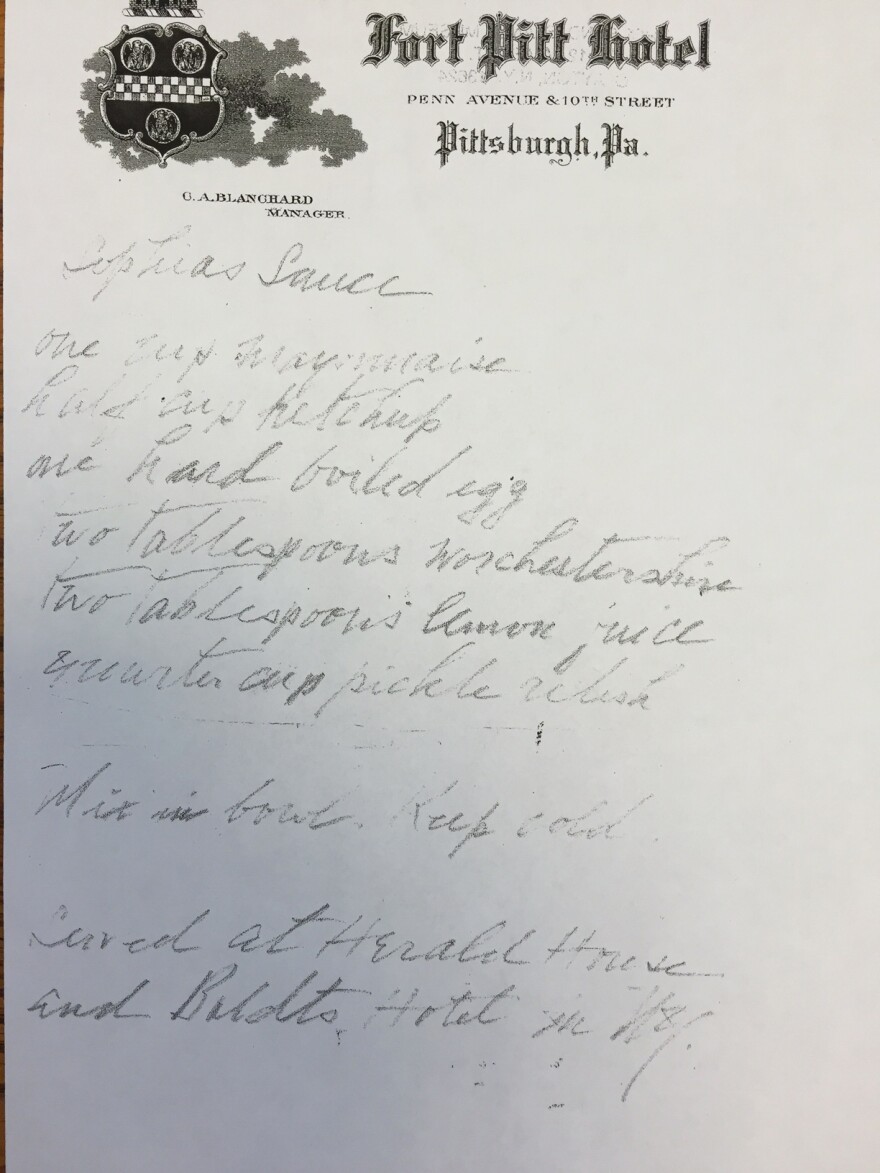 Fort Pitt Hotel
PENN AVENUE & 10TH STREET
Pittsburgh, Pa.
C. A. BLANCHARD
MANAGER.
Sophias Sauce
one cup mayonnaise
half cup ketchup
one hard boiled egg
two Tablespoons Worchestershire
two Tablespoons lemon juice
quarter cup pickle relish
Mix in bowl. Keep cold.
Served at Herald House
and Boldts Hotel in NY.